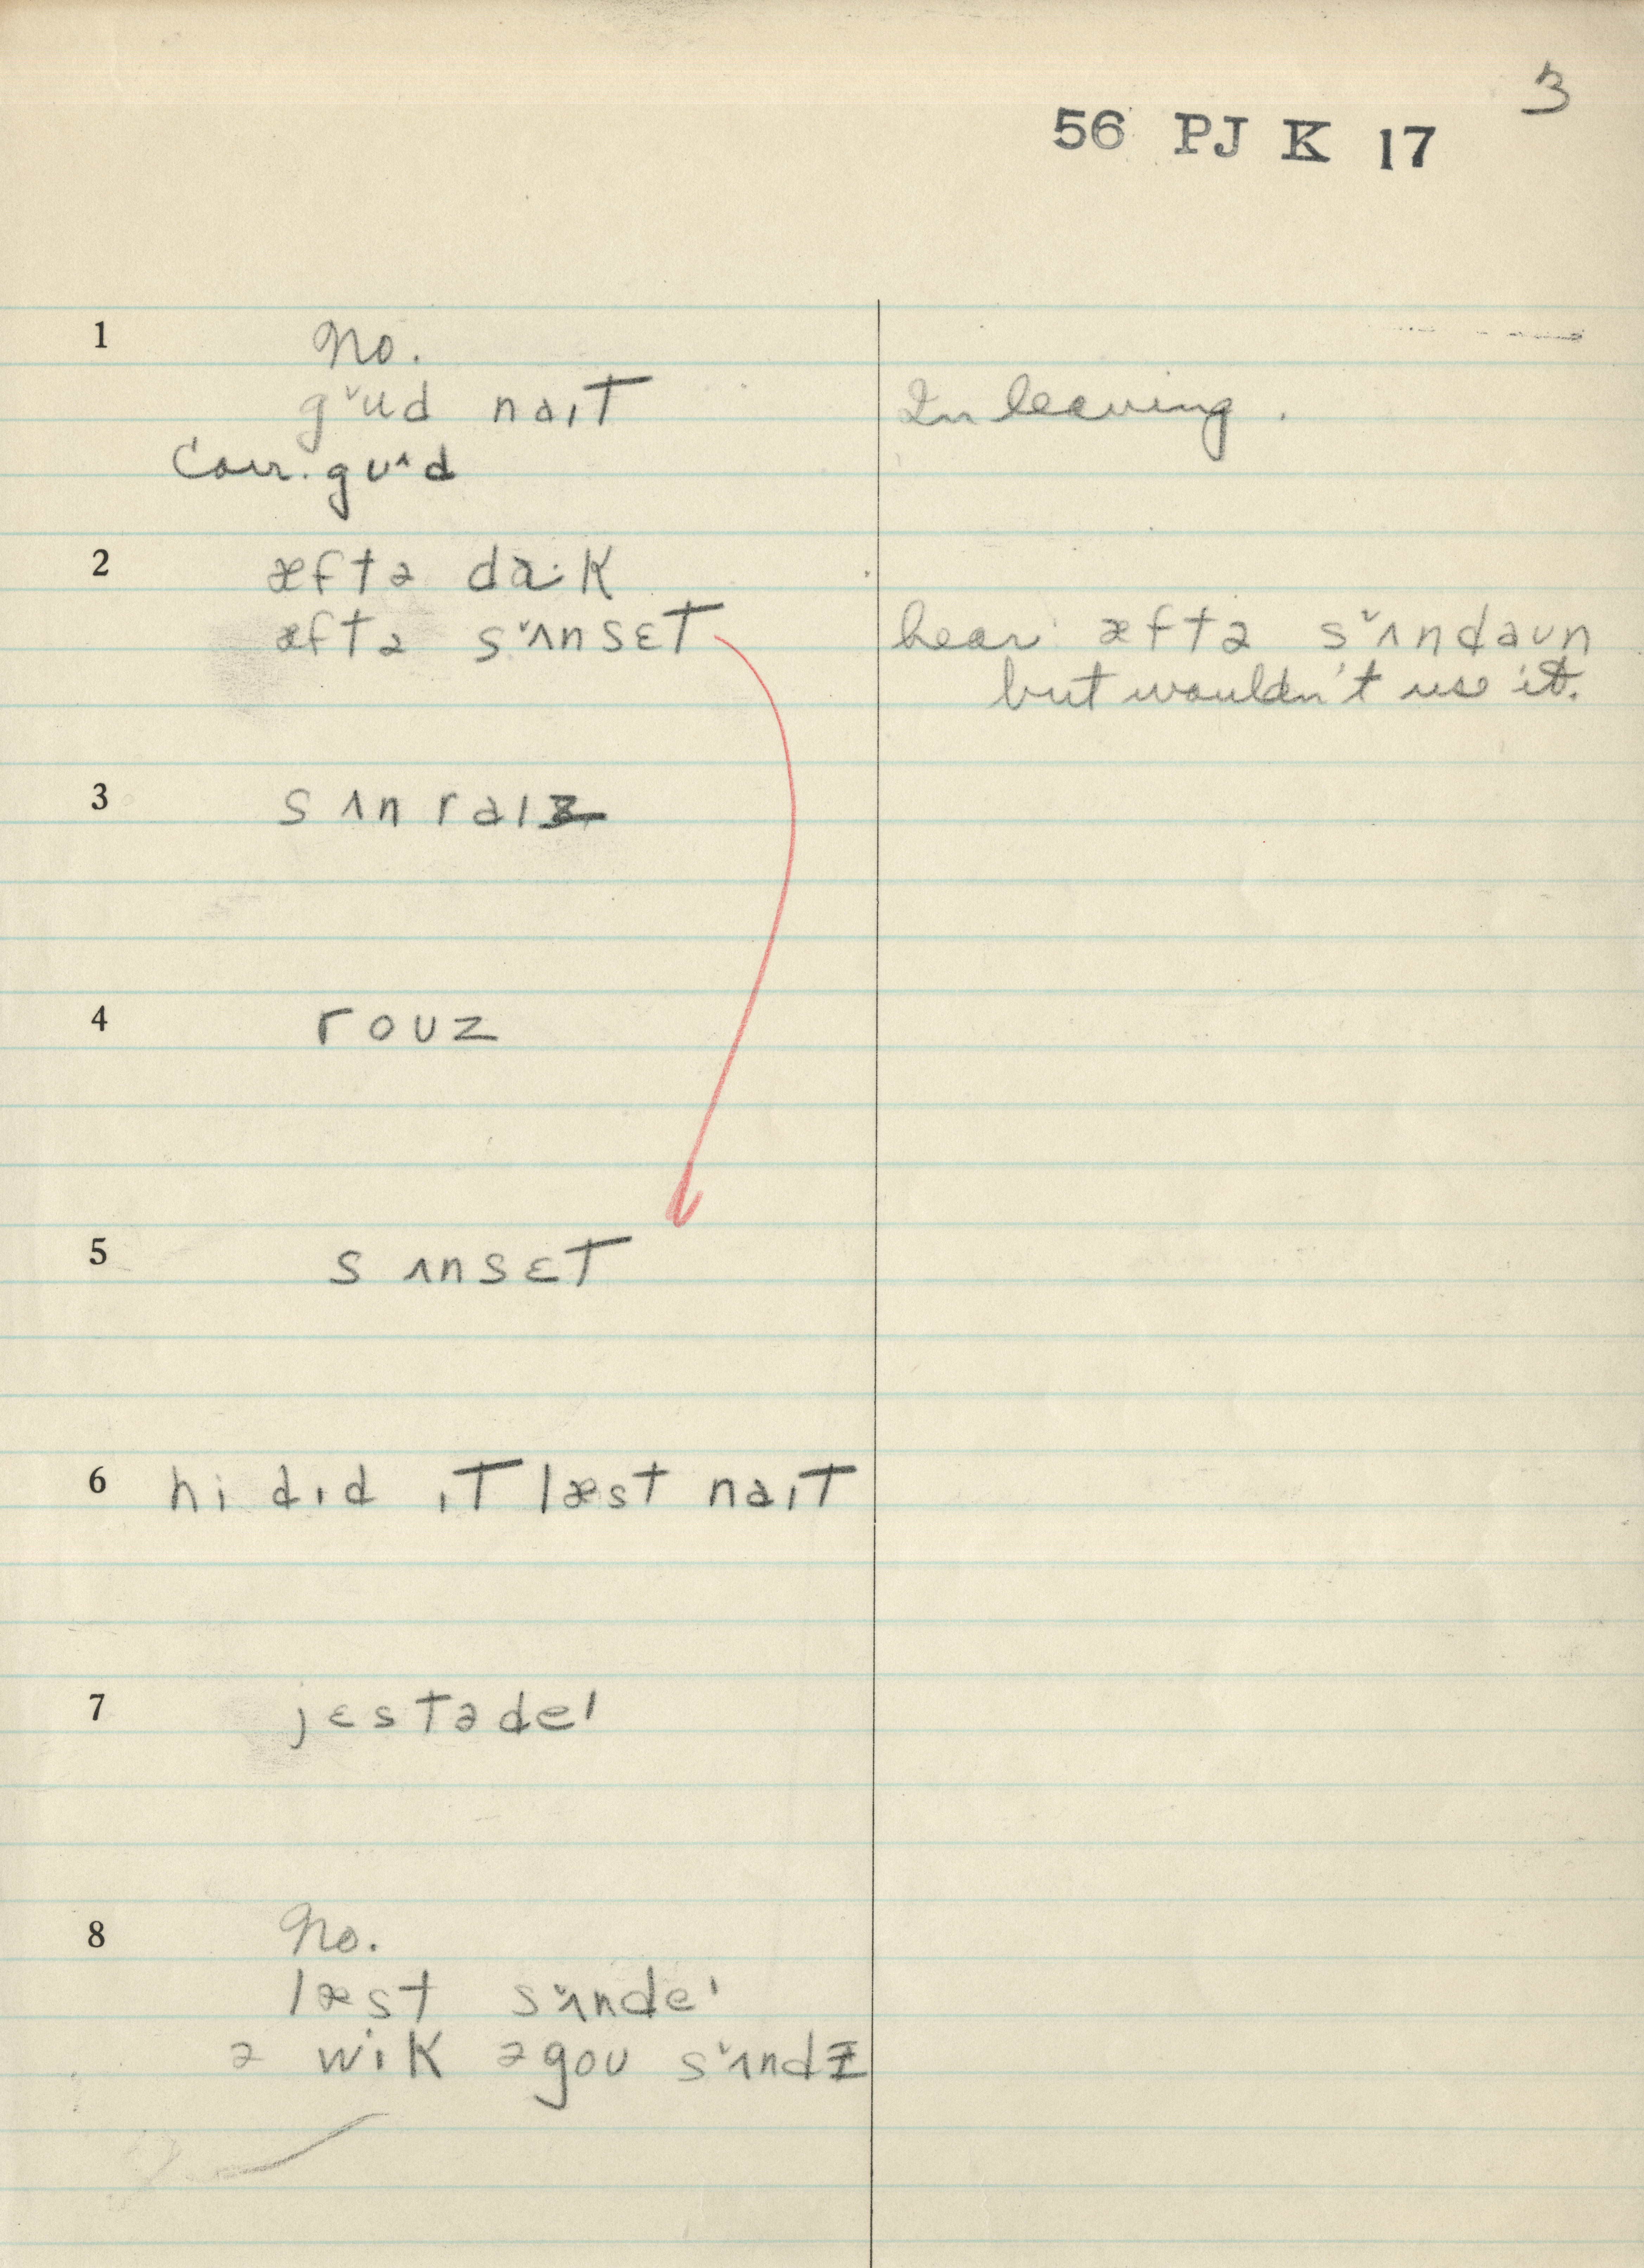 3
56 PJ K 17
1 No.
gˇud naɪt In leaving.
Corr. gʊ^d
2 æftə da·k
æftə sˇʌnsɛt hear æftə sˇʌndaʊn
but wouldn't use it.
3 sʌnraɪz
4 roʊz
5 sʌnsɛt
6 hi dɪd ɪt læst naɪt
7 jɛstədeɪ
8 No.
læst sˇʌndeɪ
ə wik əgoʊ sˇʌndɪ